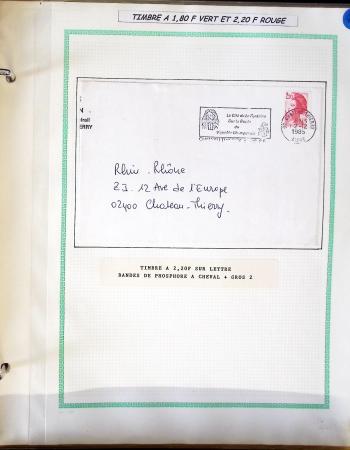 TIMBRE A 1,80 F VERT ET 2,20 F ROUGE
ERRY
La Cité de la Fontaine
Sur la Route
du
Vignoble Champenois
1985
Rhin-Rhône
Z.I. 12 Ave de l'Europe
02400 Chateau-Thierry.
TIMBRE A 2,20F SUR LETTRE
BANDES DE PHOSPHORE A CHEVAL + GROS 2